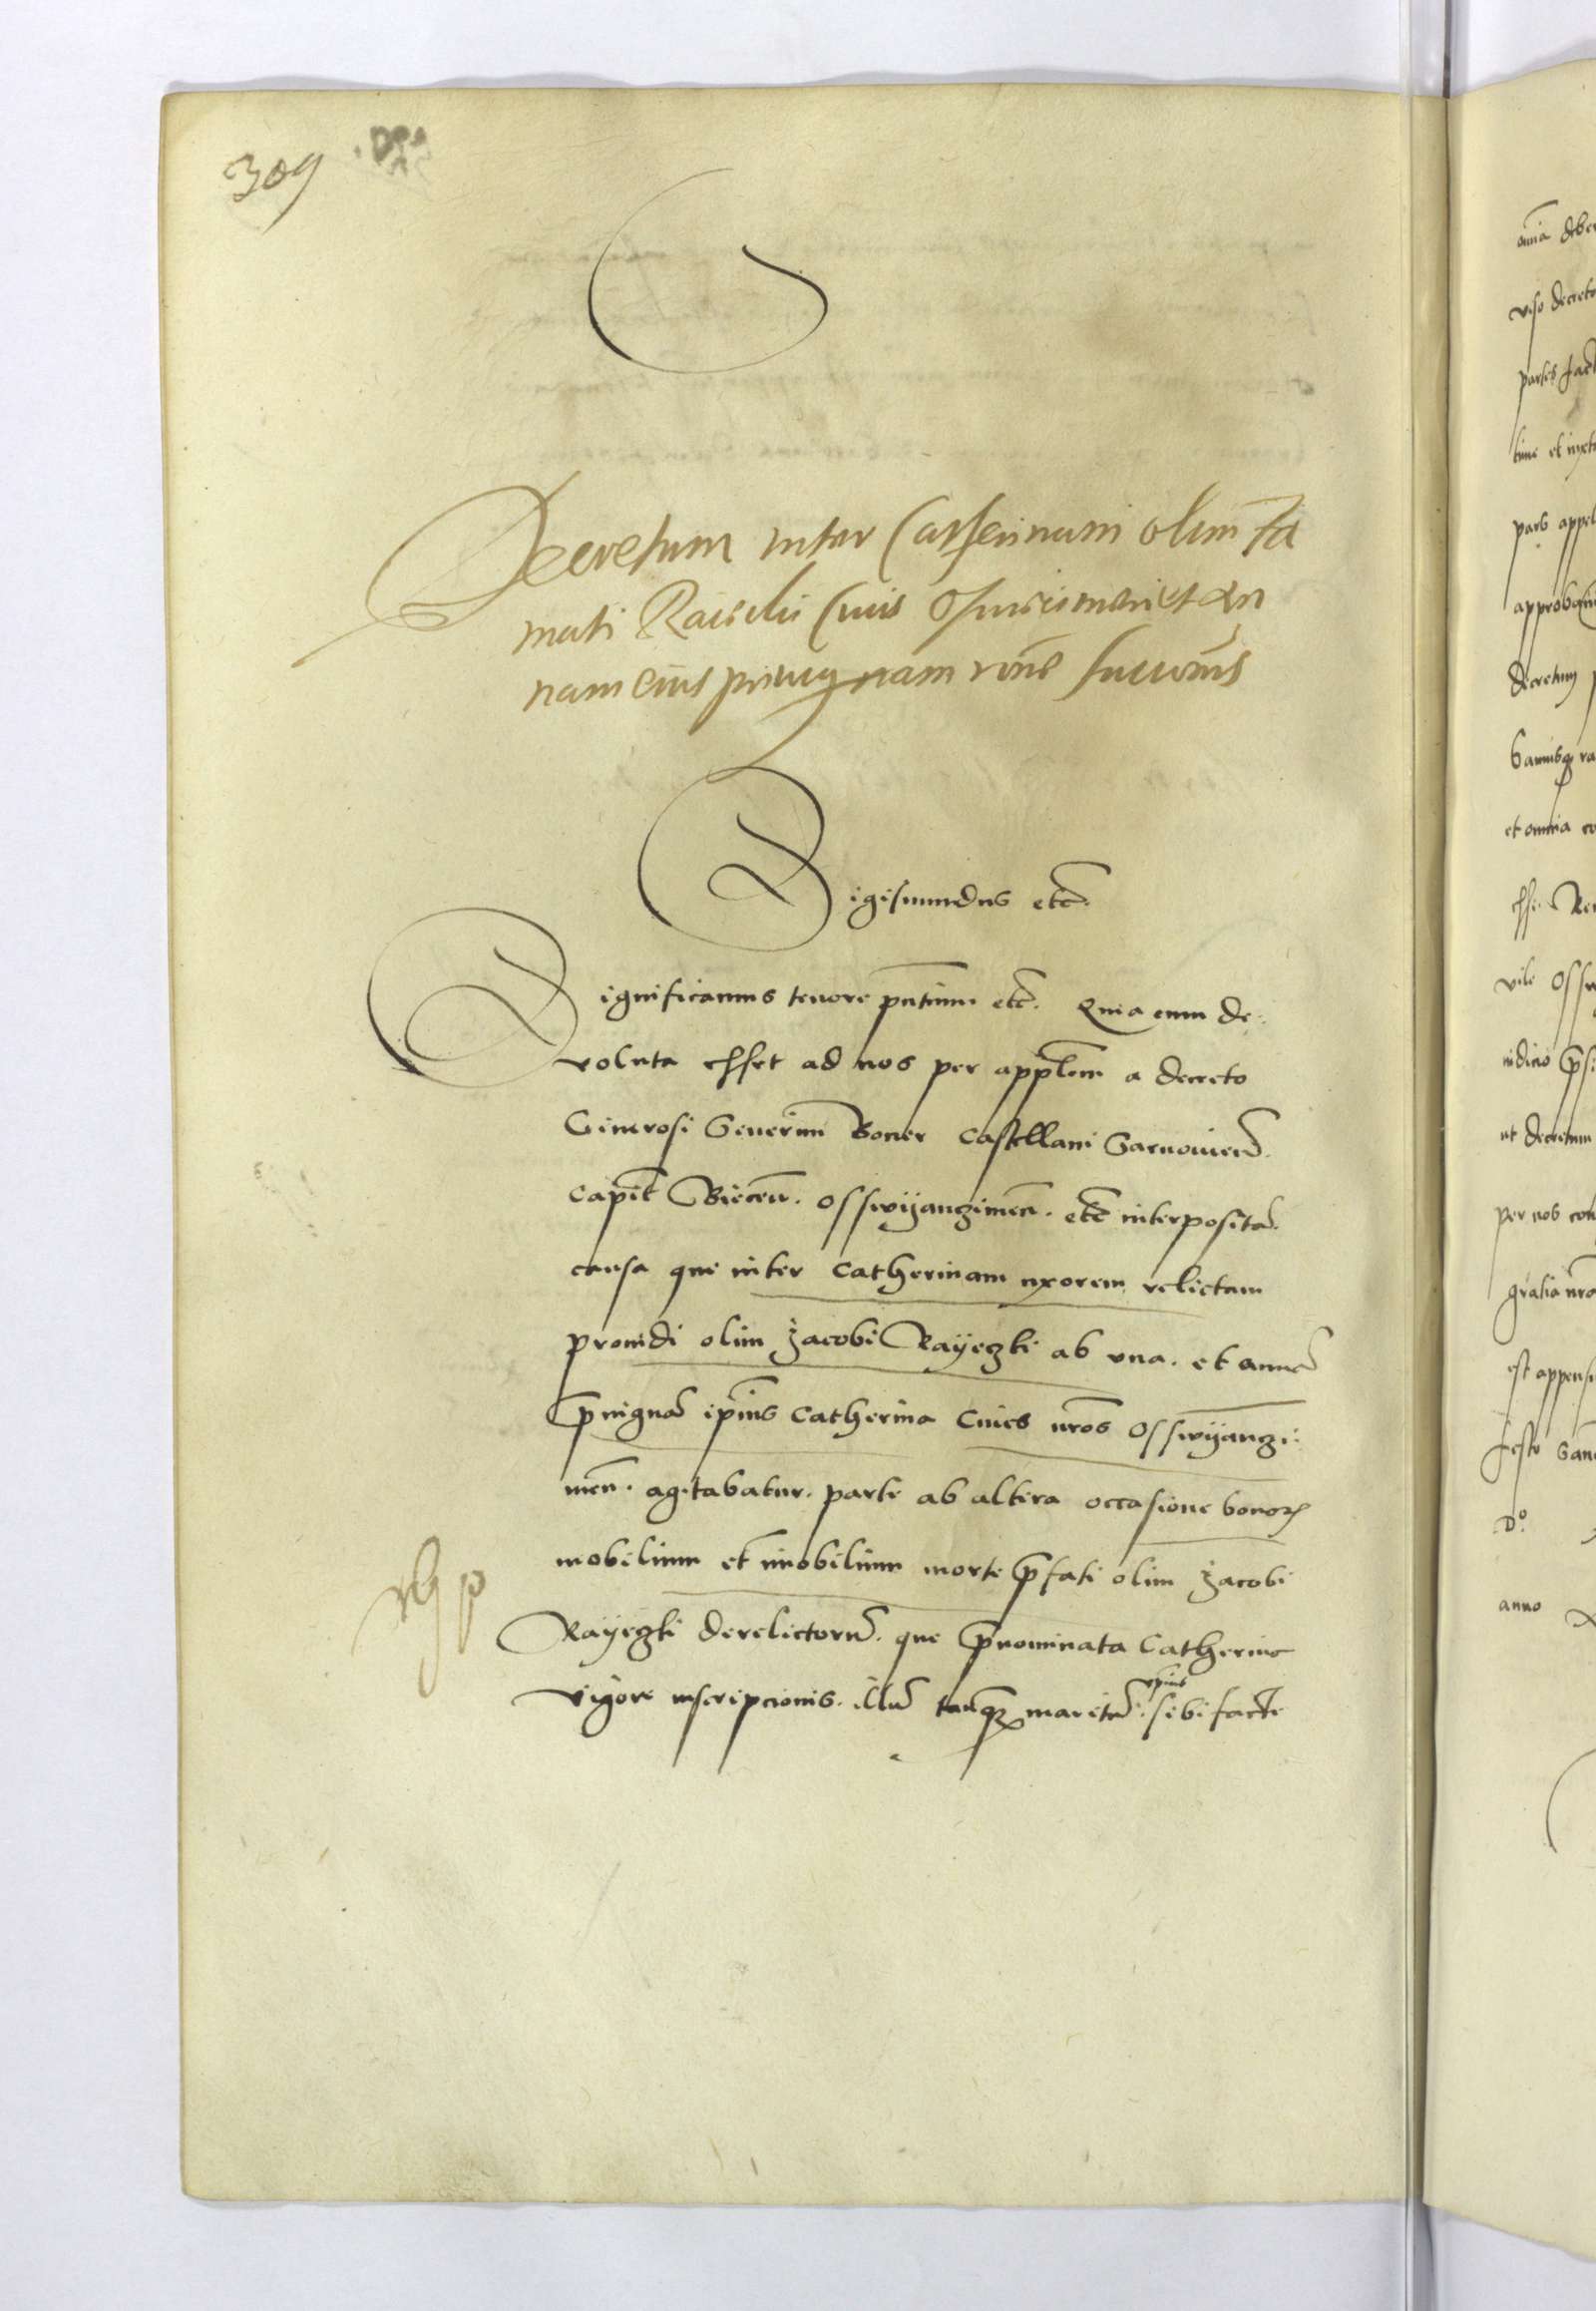 309
Decretum inter Catherinam olim Fa
mati Raiecki Civis Osswiecimen et An
nam eius privignam rone successionis
Sigismundus etc.
Significamus tenore pntium etc. Quia cum de-
voluta esset ad nos per applem a decreto
Generosi Severini Boner castellani Sarnovien.
capit Biecen. Osswyanzimen. etc interposita
causa que inter Catherinam uxorem relictam
providi olim Jacobi Rayezki ab una. et annā
pvignā ipius Catherina cives nros Osswyanzi-
men. agitabatur. parte ab altera occasione bonorꝝ
mobilium et imobilium morte pfati olim Jacobi
Rayezki derelictorū. que pnominata Catherina
vigore inscripcionis. illū tanqꝫ maritū. ipius sibi facte
omnia debe
viso decreto
partes
pars appel
decretum
et omnia co
esse
vile Ossw
iudicio
ut decretum
per nos con
gratia nra
est appens
festo San
Do
anno